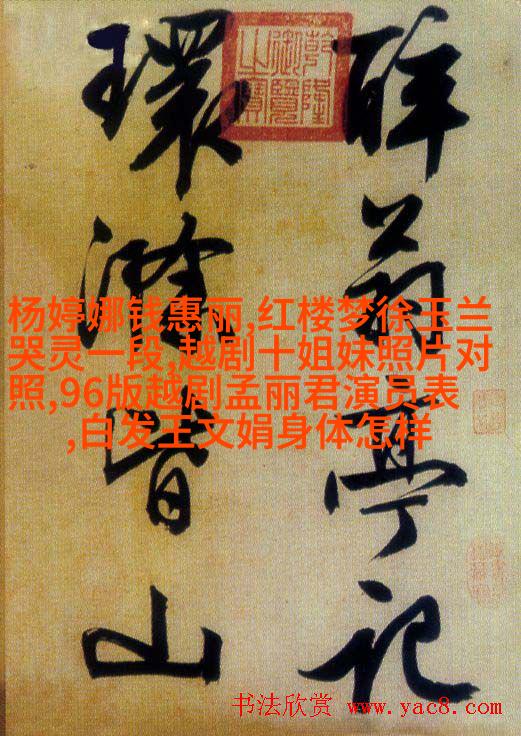 醉翁亭記
環滁皆山
乾隆
御覽
之寶
杨婷娜钱惠丽,红楼梦徐玉兰
哭灵一段,越剧十姐妹照片对
照,96版越剧孟丽君演员表
,白发王文娟身体怎样
书法欣赏 www.yac8.com